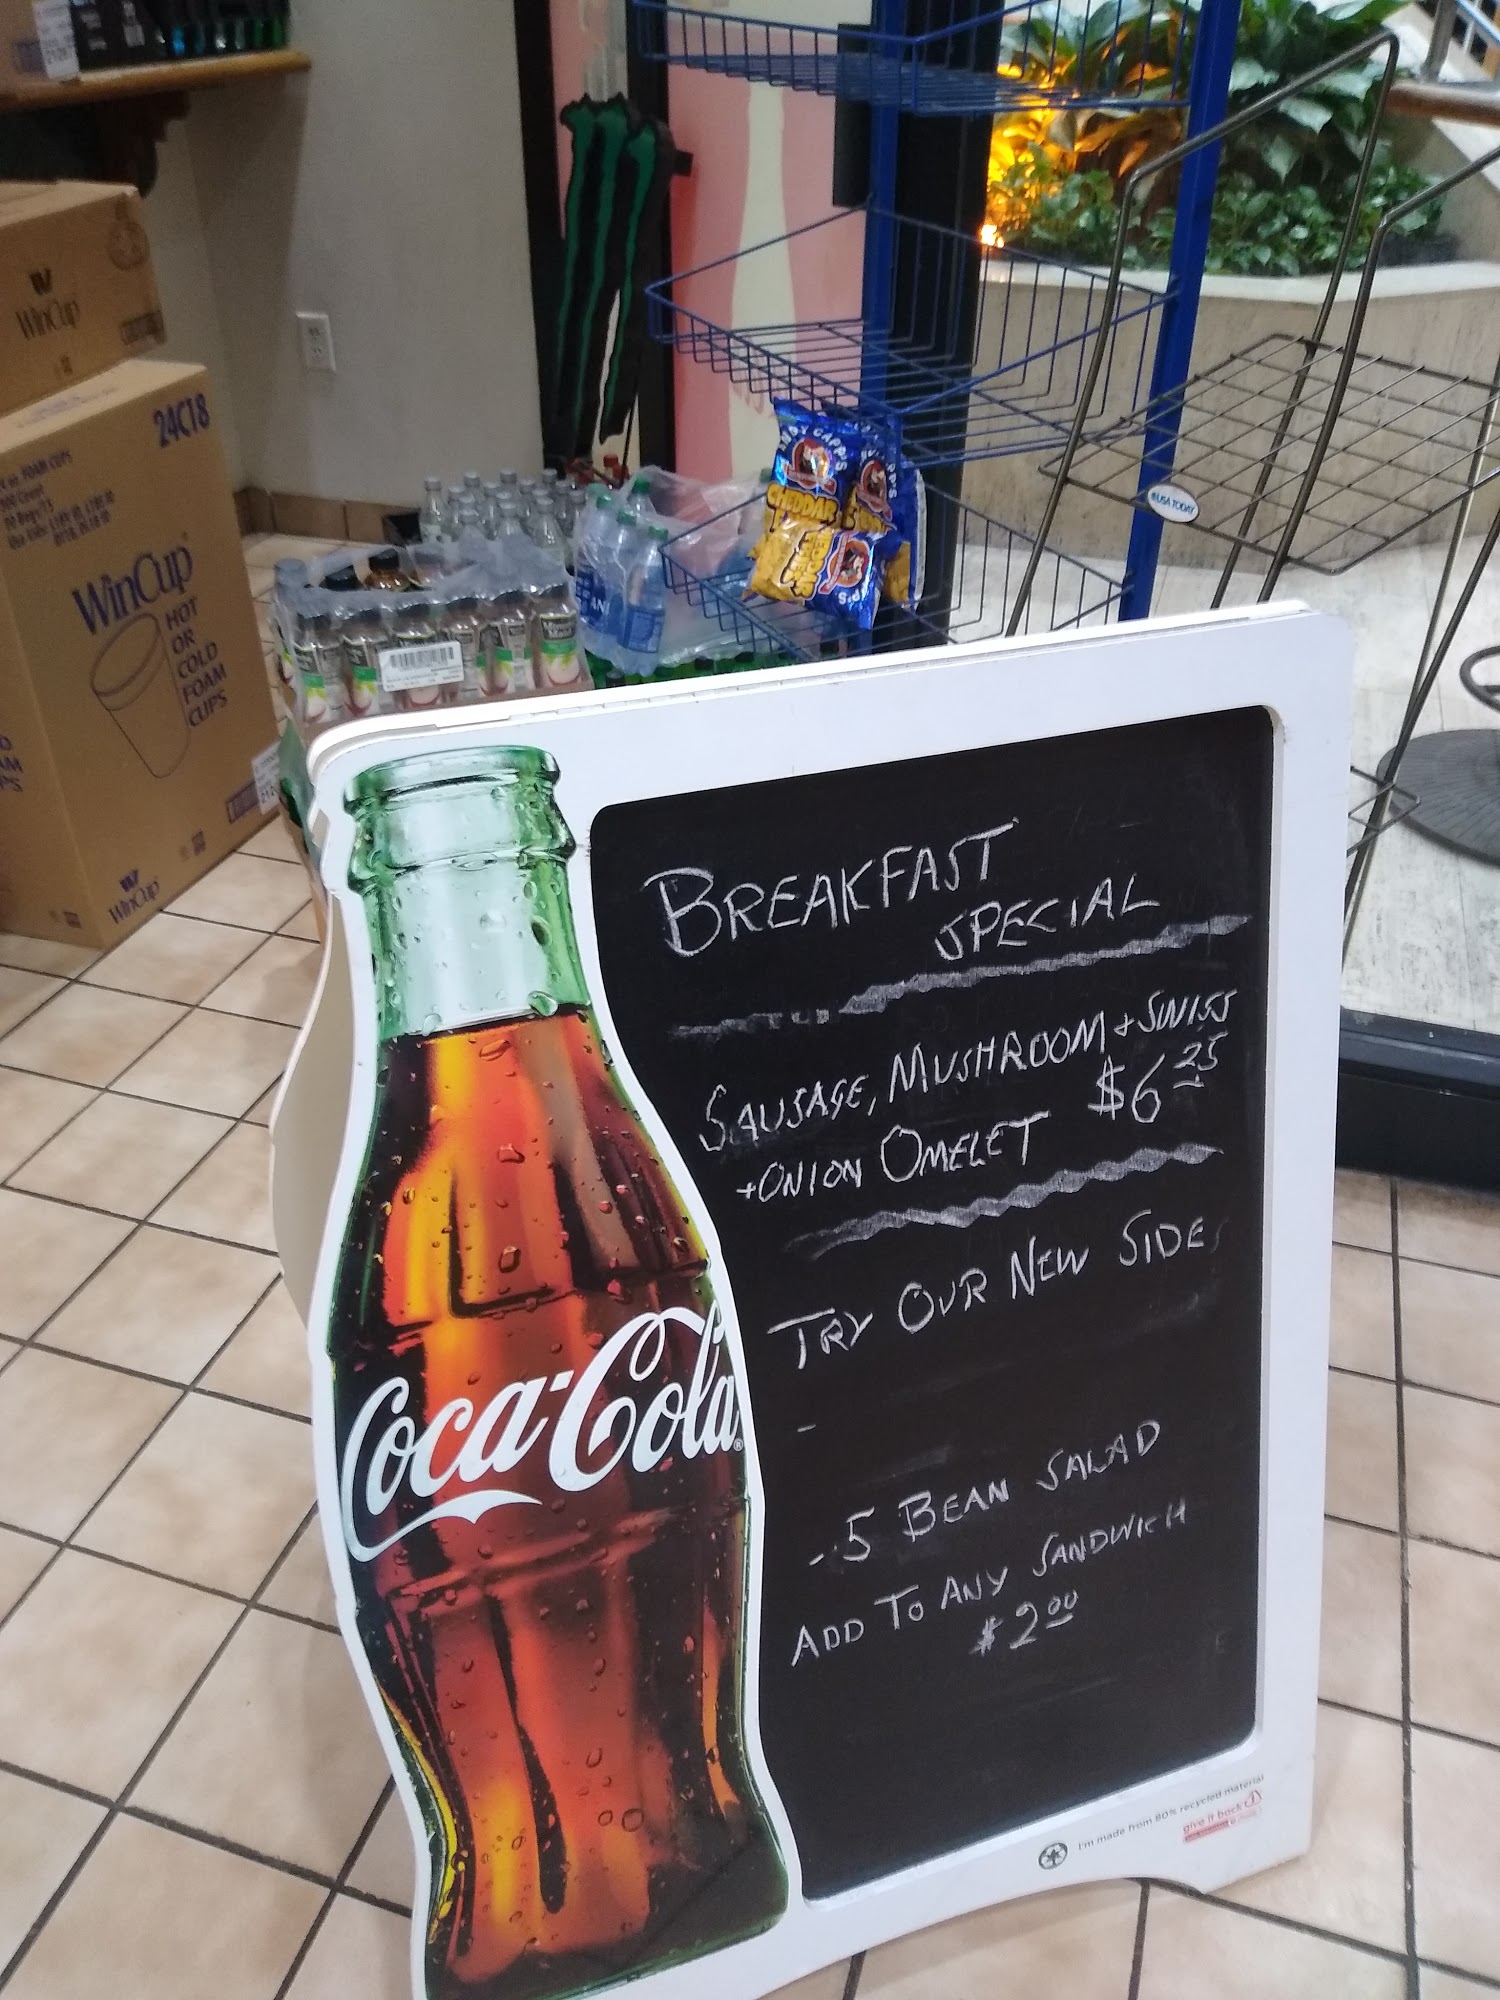 BREAKFAST
SPECIAL
SAUSAGE, MUSHROOM + SWISS
+ ONION OMELET $6.25
TRY OUR NEW SIDE
-
- 5 BEAN SALAD
ADD TO ANY SANDWICH
$2.00
Coca-Cola
I'm made from 80% recycled material
give it back
WinCup
24C18
FOAM CUPS
WinCup
HOT
OR
COLD
FOAM
CUPS
WinCup
ANDY CAPP'S
CHEDDAR
USA TODAY